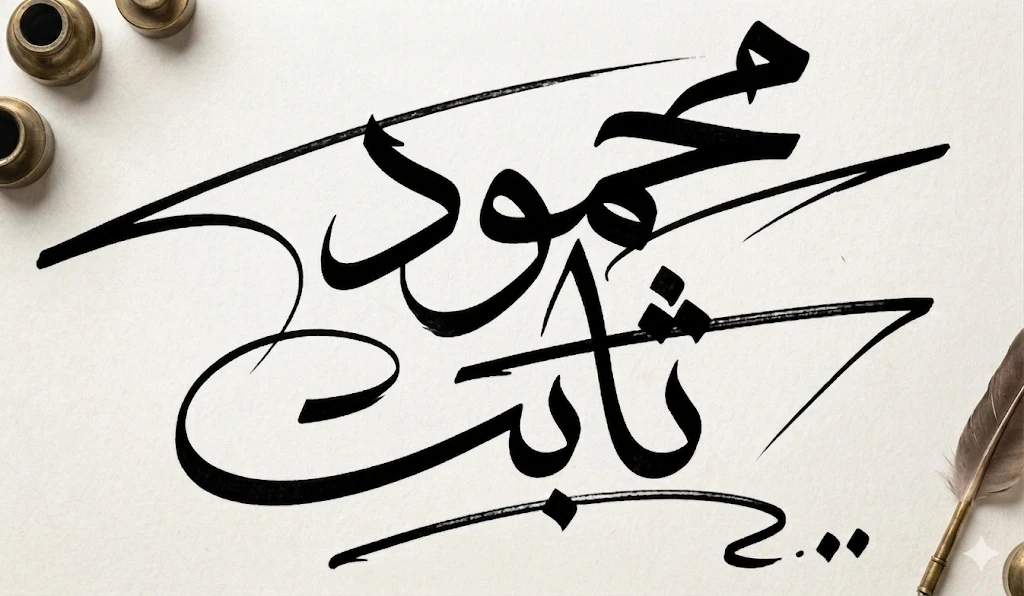 محمود
ثابت